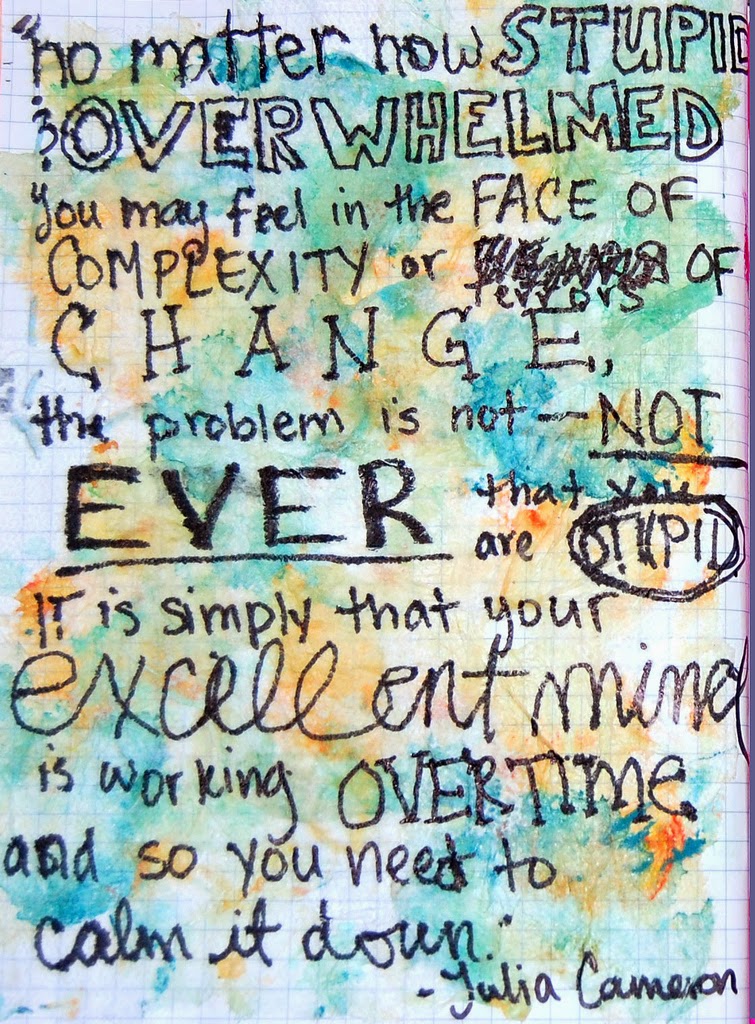 "no matter how STUPID
& OVERWHELMED
you may feel in the FACE OF
COMPLEXITY or terrors OF
CHANGE,
the problem is not — NOT
EVER that you
are STUPID
IT is simply that your
excellent mind
is working OVERTIME
and so you need to
calm it down."
- Julia Cameron